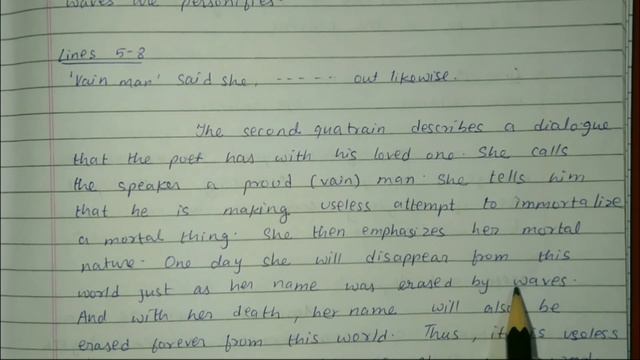 waves are personified.
Lines 5-8
'Vain man' said she, ------ out likewise.
The second quatrain describes a dialogue
that the poet has with his loved one. She calls
the speaker a proud (vain) man. She tells him
that he is making useless attempt to immortalize
a mortal thing. She then emphasizes her mortal
nature. One day she will disappear from this
world just as her name was erased by waves.
And with her death, her name will also be
erased forever from this world. Thus, it is useless